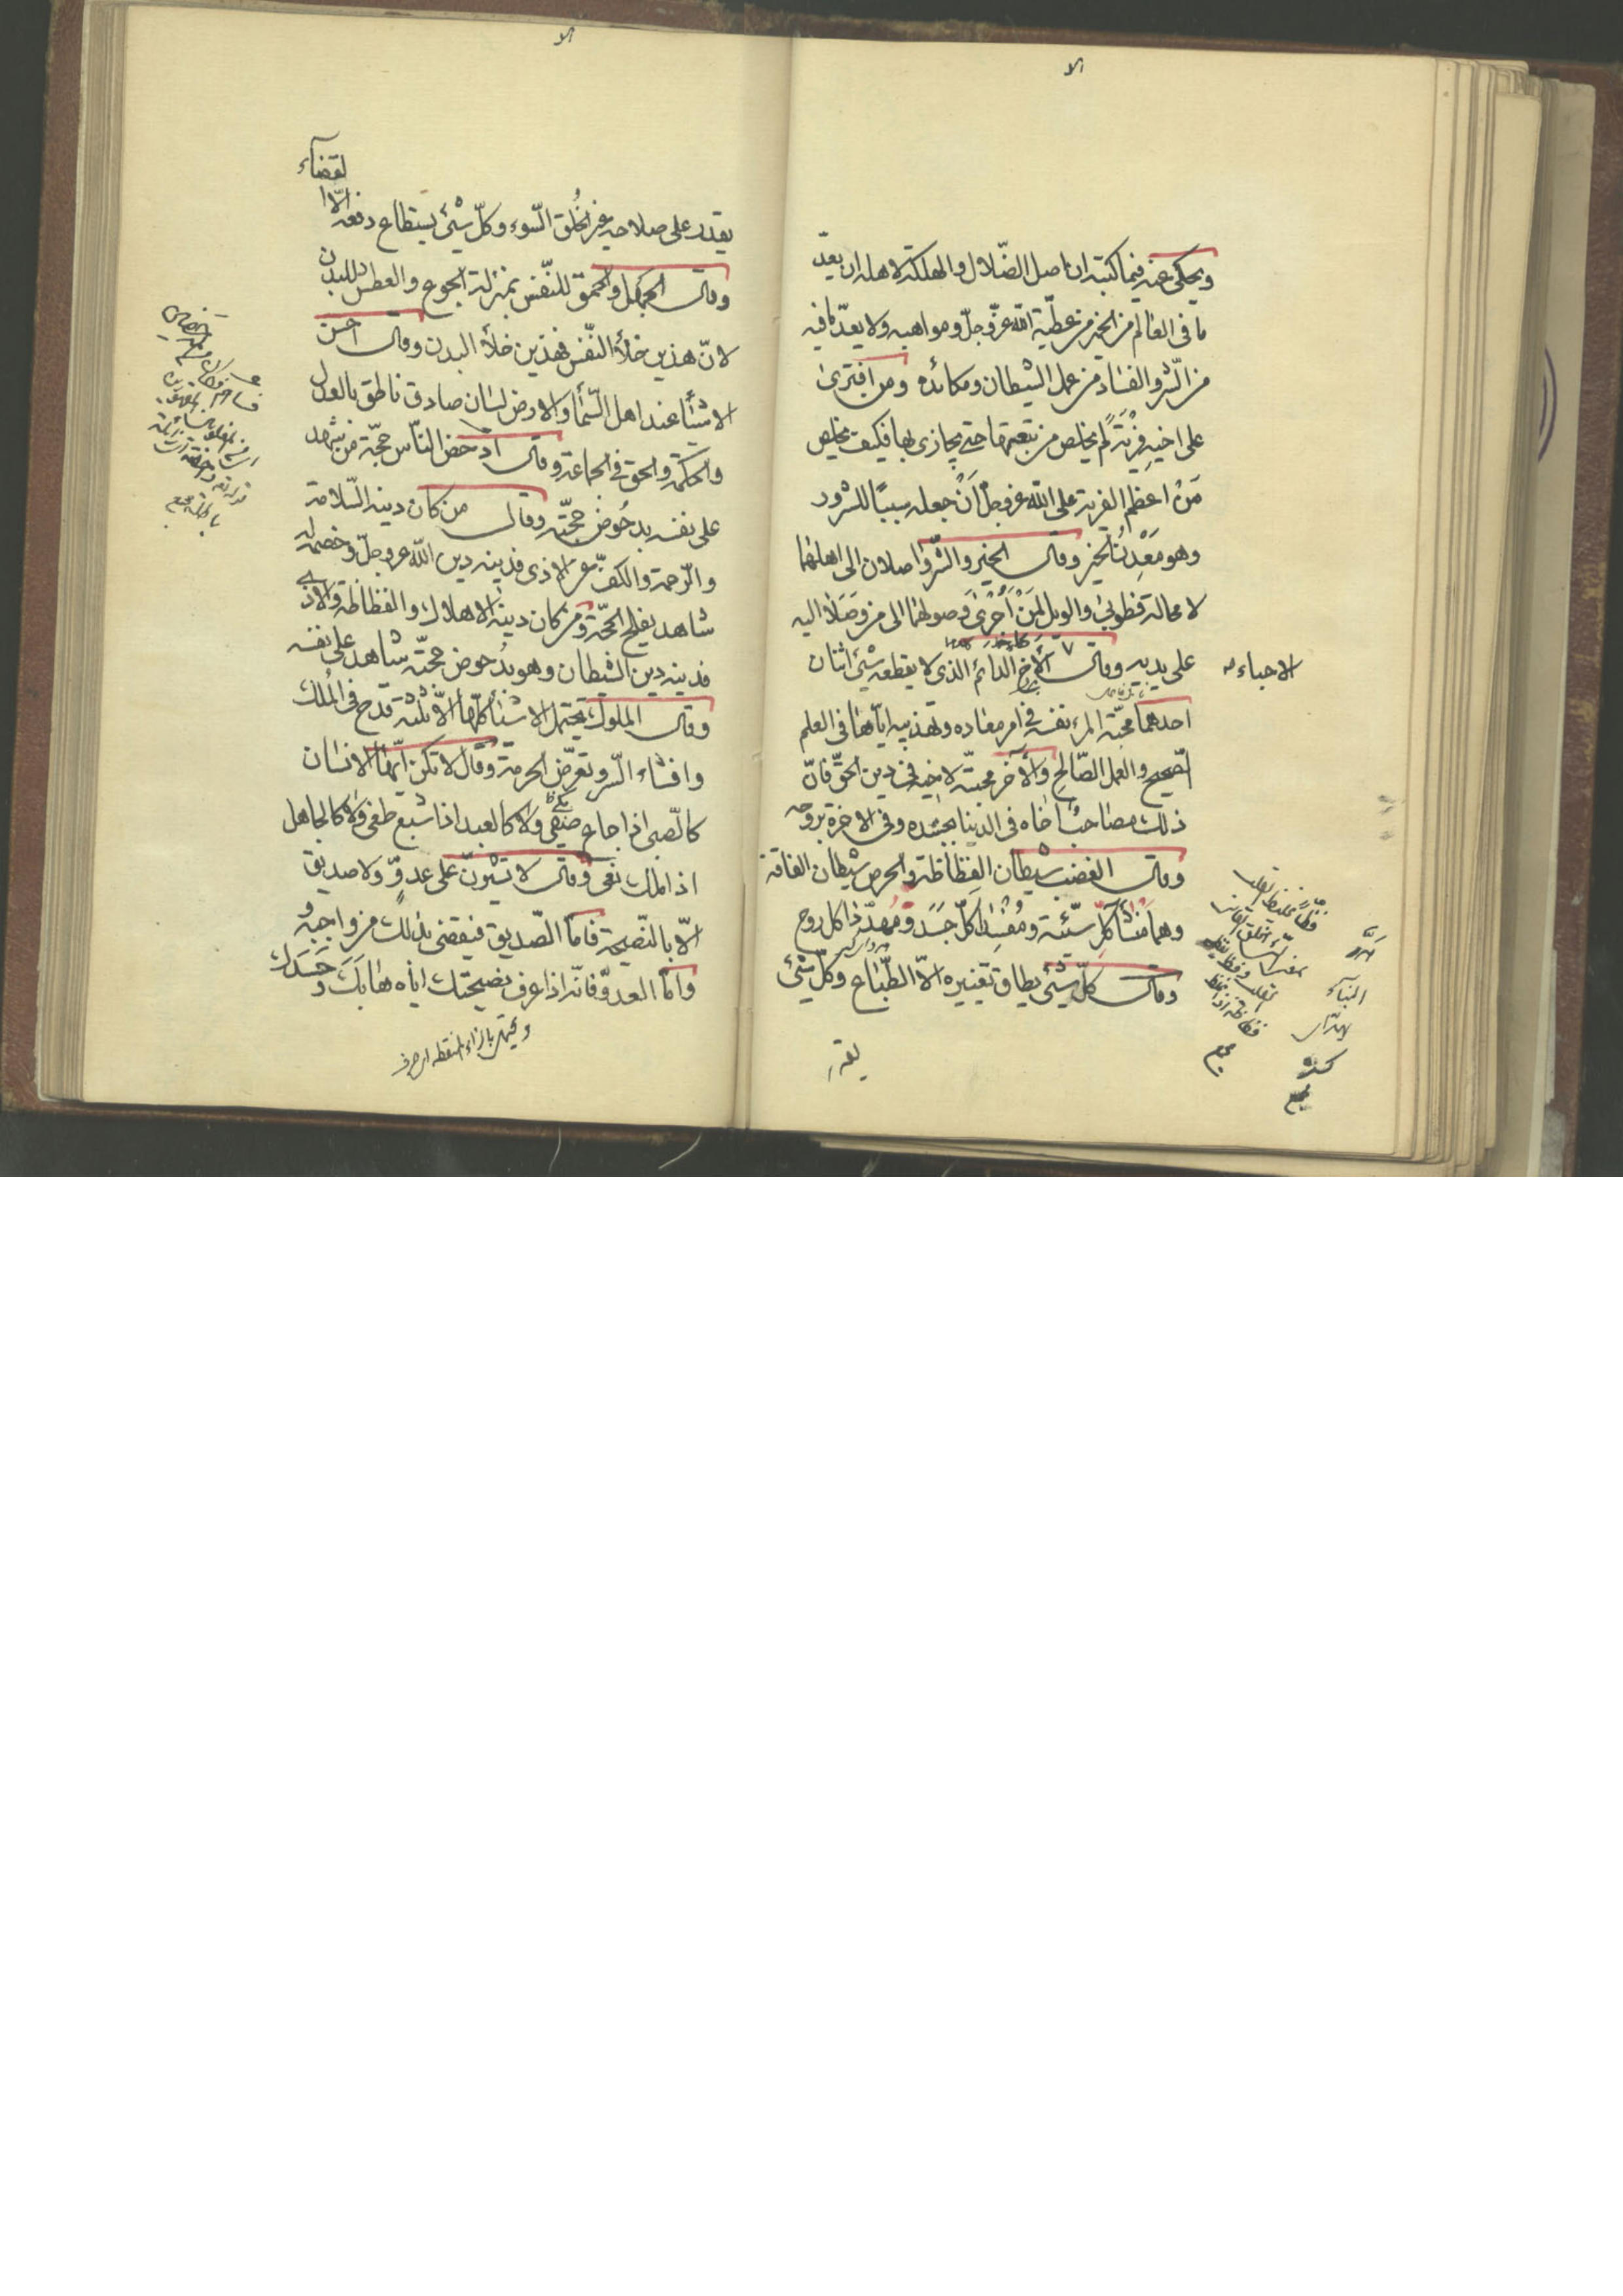 الا
ويحكى عنه فيما كتبته ان اصل الضّلال والهلكة لاهله ان يعدّ
ما فى العالم من الخير من عطيّة الله عزّ وجلّ ومواهبه ولا يعدّ ما فيه
من الشّر والفساد من عمل الشيطان ومكائده ومن افترى
على اخيه فِرْيَةً لم يخلص من تبعتها حتى يجازى بها فكيف يخلص
مَنْ اعظم الفرية على الله عز وجل اَنْ جعله سببًا للشرور
وهو مَعْدِنُ الخير وقال الخير والشّر واصلان الى اهلهما
لا محالة فطوبى والويل لِمَنْ اُجْرِىَ وصولهما الى من وَصَلا اليه
على يديه وقال الاخ الدائم الذى لا يقطعه شئ اثنان
الاحباء
احدهما محبّة المرء نفسه فى امر معاده وتهذيبه ايّاها فى العلم
الصحيح والعمل الصّالح والآخر محبتّه لاخيه فى دين الحقّ فانّ
ذلك مصاحب اخاه فى الدنيا بجسده وفى الاخرة بروحه
وقال الغضب شيطان الفظاظة والحرص شيطان الفاقة
وهما منشأ كلّ سيّئة ومُفْسِدا كلّ جسد ومُهدّدا كل روح
وقال كلّ شئ يطاق تغييره الاّ الطّباع وكلّ شئ
يقدر
الا
يقدر على صلاحه غير الخُلق السّوء وكلّ شئ يستطاع دفعه الاّ
القضاء
وقال الجهل والحمق للنّفس بمنزلة الجوع والعطش للبدن
لانّ هذين خلأ النّفس وهذين خلأ البدن وقال احسن
الاشيأ عند اهل السّمأ والارض لسان صادق ناطق بالعدل
والحكمة والحق فى الجماعة وقال ادحض النّاس حجّة من شهد
على نفسه بدحُوض حجّته وقال من كان دينه السّلامة
والرّحمة والكفّ عن الاذى فدينه دين الله عز وجلّ وخصمه له
شاهد بفلج الحجّة ومن كان دينه الاهلاك والفظاظة والاذى
فدينه دين الشيطان وهو بدُحوض حجّته شاهد على نفسه
وقال الملوك تحتمل الاشيأ كلّها الاّ ثلثة قدح فى المُلك
وافشاء السّر وتعرّض الحرمة وقال لا تكن ايّها الانسان
كالصّبى اذا جاع ضغى ولا كالعبد اذا شبع طغى ولا كالجاهل
اذا ملك بغى وقال لا تشيرنّ على عدوّ ولا صديق
الاّ بالنّصيحة فامّا الصّديق فيقضى بذلك من واجبه و
وامّا العدوّ فانّه اذا عرف نصيحتك ايّاه هابَكَ وحَسَدك